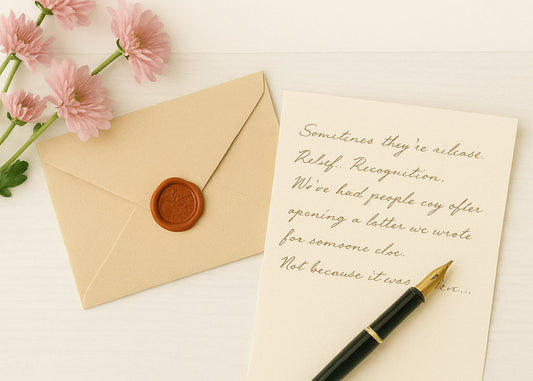 Somitines they're rilcase.
Relsef.. Recognition.
We've had people coy ofter
aponing a lotter wc wrote
for somoone cloe.
Not because it was